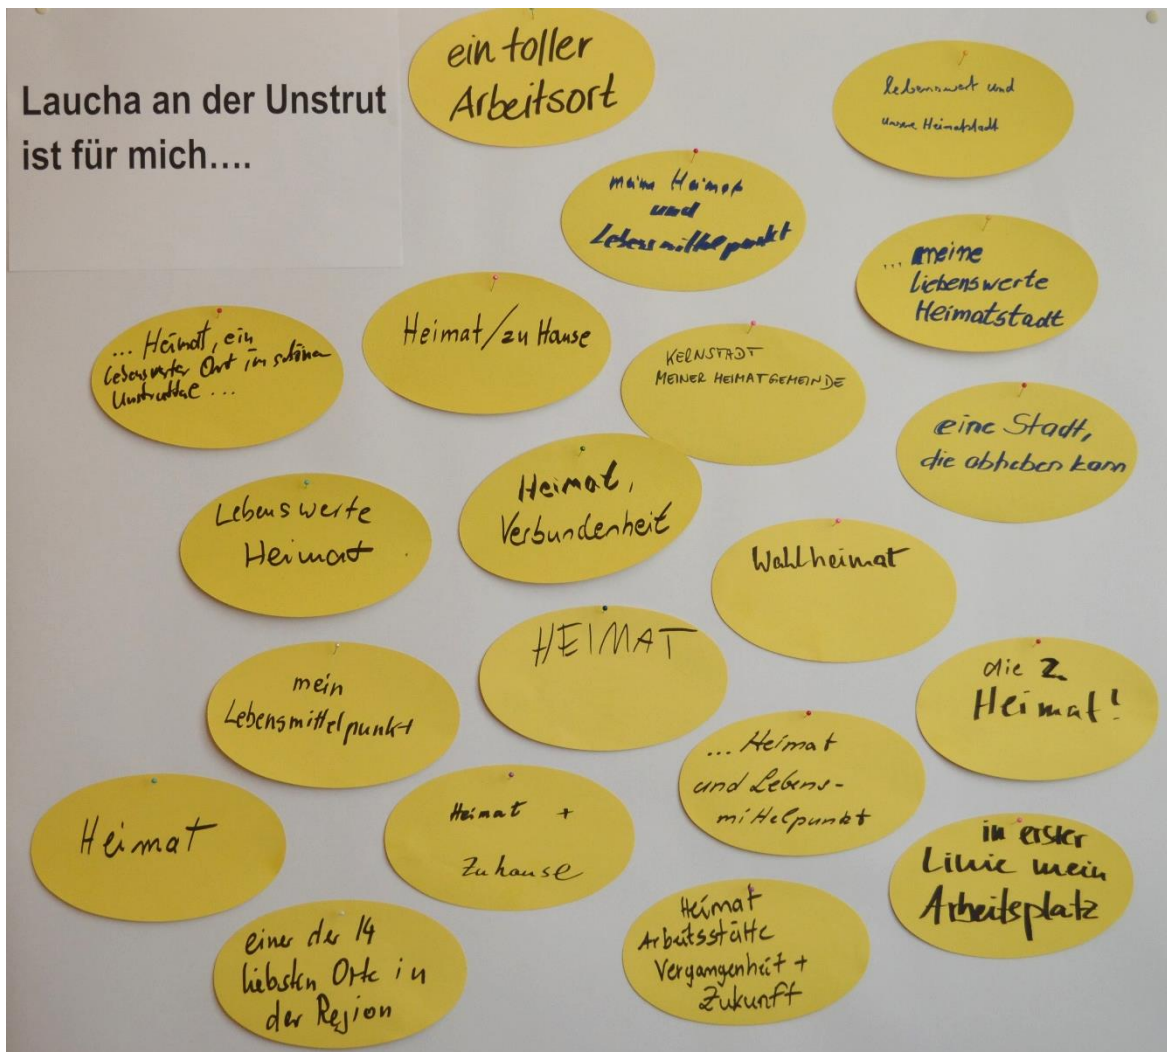 Laucha an der Unstrut
ist für mich....
ein toller
Arbeitsort
lebenswert und
unsere Heimatstadt
meine Heimat
und
Lebensmittelpunkt
... meine
liebenswerte
Heimatstadt
... Heimat, ein
lebenswerter Ort im schönen
Unstruttal ...
Heimat/zu Hause
KERNSTADT
MEINER HEIMATGEMEINDE
eine Stadt,
die abheben kann
Lebenswerte
Heimat
Heimat,
Verbundenheit
Wahlheimat
mein
Lebensmittelpunkt
HEIMAT
die 2.
Heimat!
... Heimat
und Lebens-
mittelpunkt
Heimat
Heimat +
Zuhause
in erster
Linie mein
Arbeitsplatz
einer der 14
liebsten Orte in
der Region
Heimat
Arbeitsstätte
Vergangenheit +
Zukunft